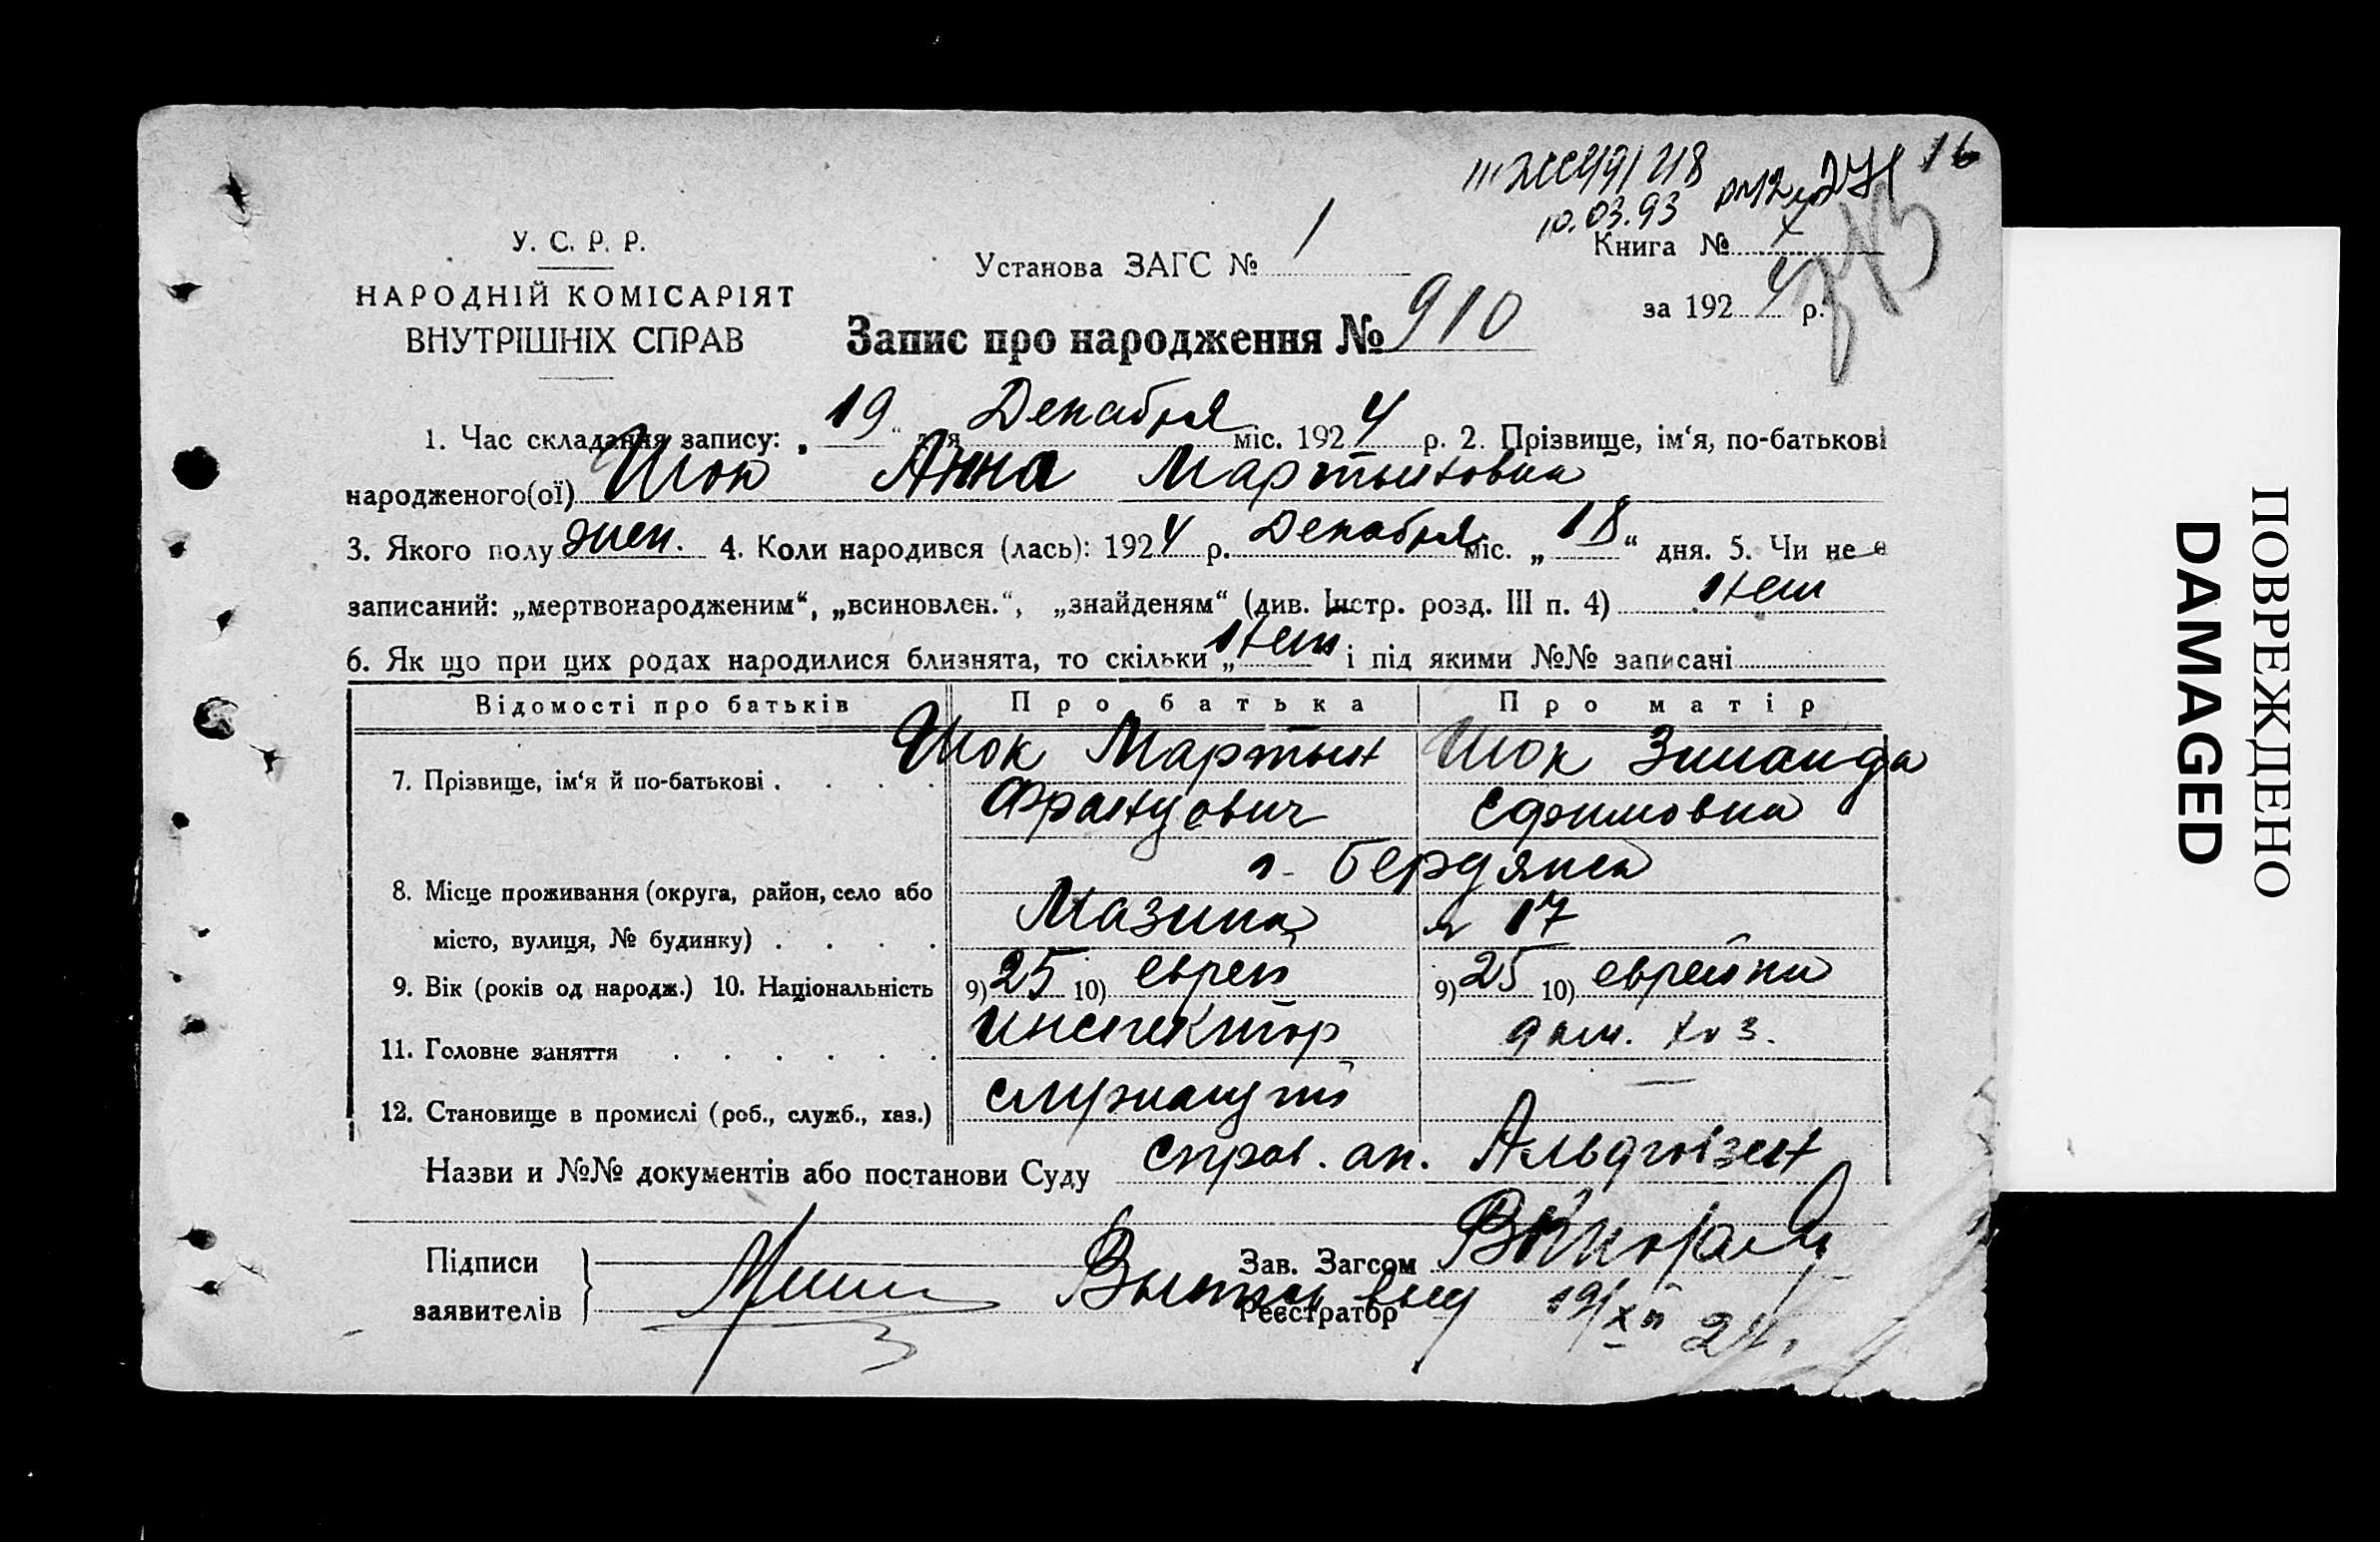 16
10.03.93
У. С. Р. Р.
НАРОДНІЙ КОМІСАРІЯТ
ВНУТРІШНІХ СПРАВ
Установа ЗАГС № 1
Книга №
за 1924 р.
Запис про народження № 910
1. Час складання запису: „19“ дня Декабря міс. 1924 р. 2. Прізвище, ім‘я, по-батькові
народженого(ої) Шок Анна Мартыновна
3. Якого полу жен. 4. Коли народився (лась): 1924 р. Декабря міс. „18“ дня. 5. Чи не є
записаний: „мертвонародженим“, „всиновлен.“, „знайденям“ (див. Інстр. розд. III п. 4) нет
6. Як що при цих родах народилися близнята, то скільки „нет і під якими №№ записані
Відомості про батьків Про батька Про матір
7. Прізвище, ім‘я й по-батькові . . . . Шок Мартын Шок Зинаида
Францович Ефимовна
г. Бердянск
8. Місце проживання (округа, район, село або
місто, вулиця, № будинку) . . . . Мазина 17
9. Вік (років од народж.) 10. Національність 9) 25 10) еврей 9) 25 10) еврейка
11. Головне заняття . . . . . . инспектор дом. хоз.
12. Становище в промислі (роб., служб., хаз.) служащий —
Назви и №№ документів або постанови Суду Справ. ак.
Підписи
заявителів
Зав. Загсом
Реєстратор
19/XII 24.
ПОВРЕЖДЕНО
DAMAGED